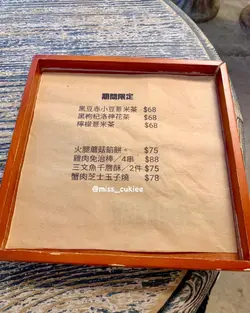 期間限定
黑豆赤小豆薏米茶 $68
黑枸杞洛神花茶 $68
檸檬薏米茶 $68
火腿蘑菇餡餅 $75
雞肉免治棒／4串 $88
三文魚千層酥／2件 $75
蟹肉芝士玉子燒 $78
@miss__cukiee